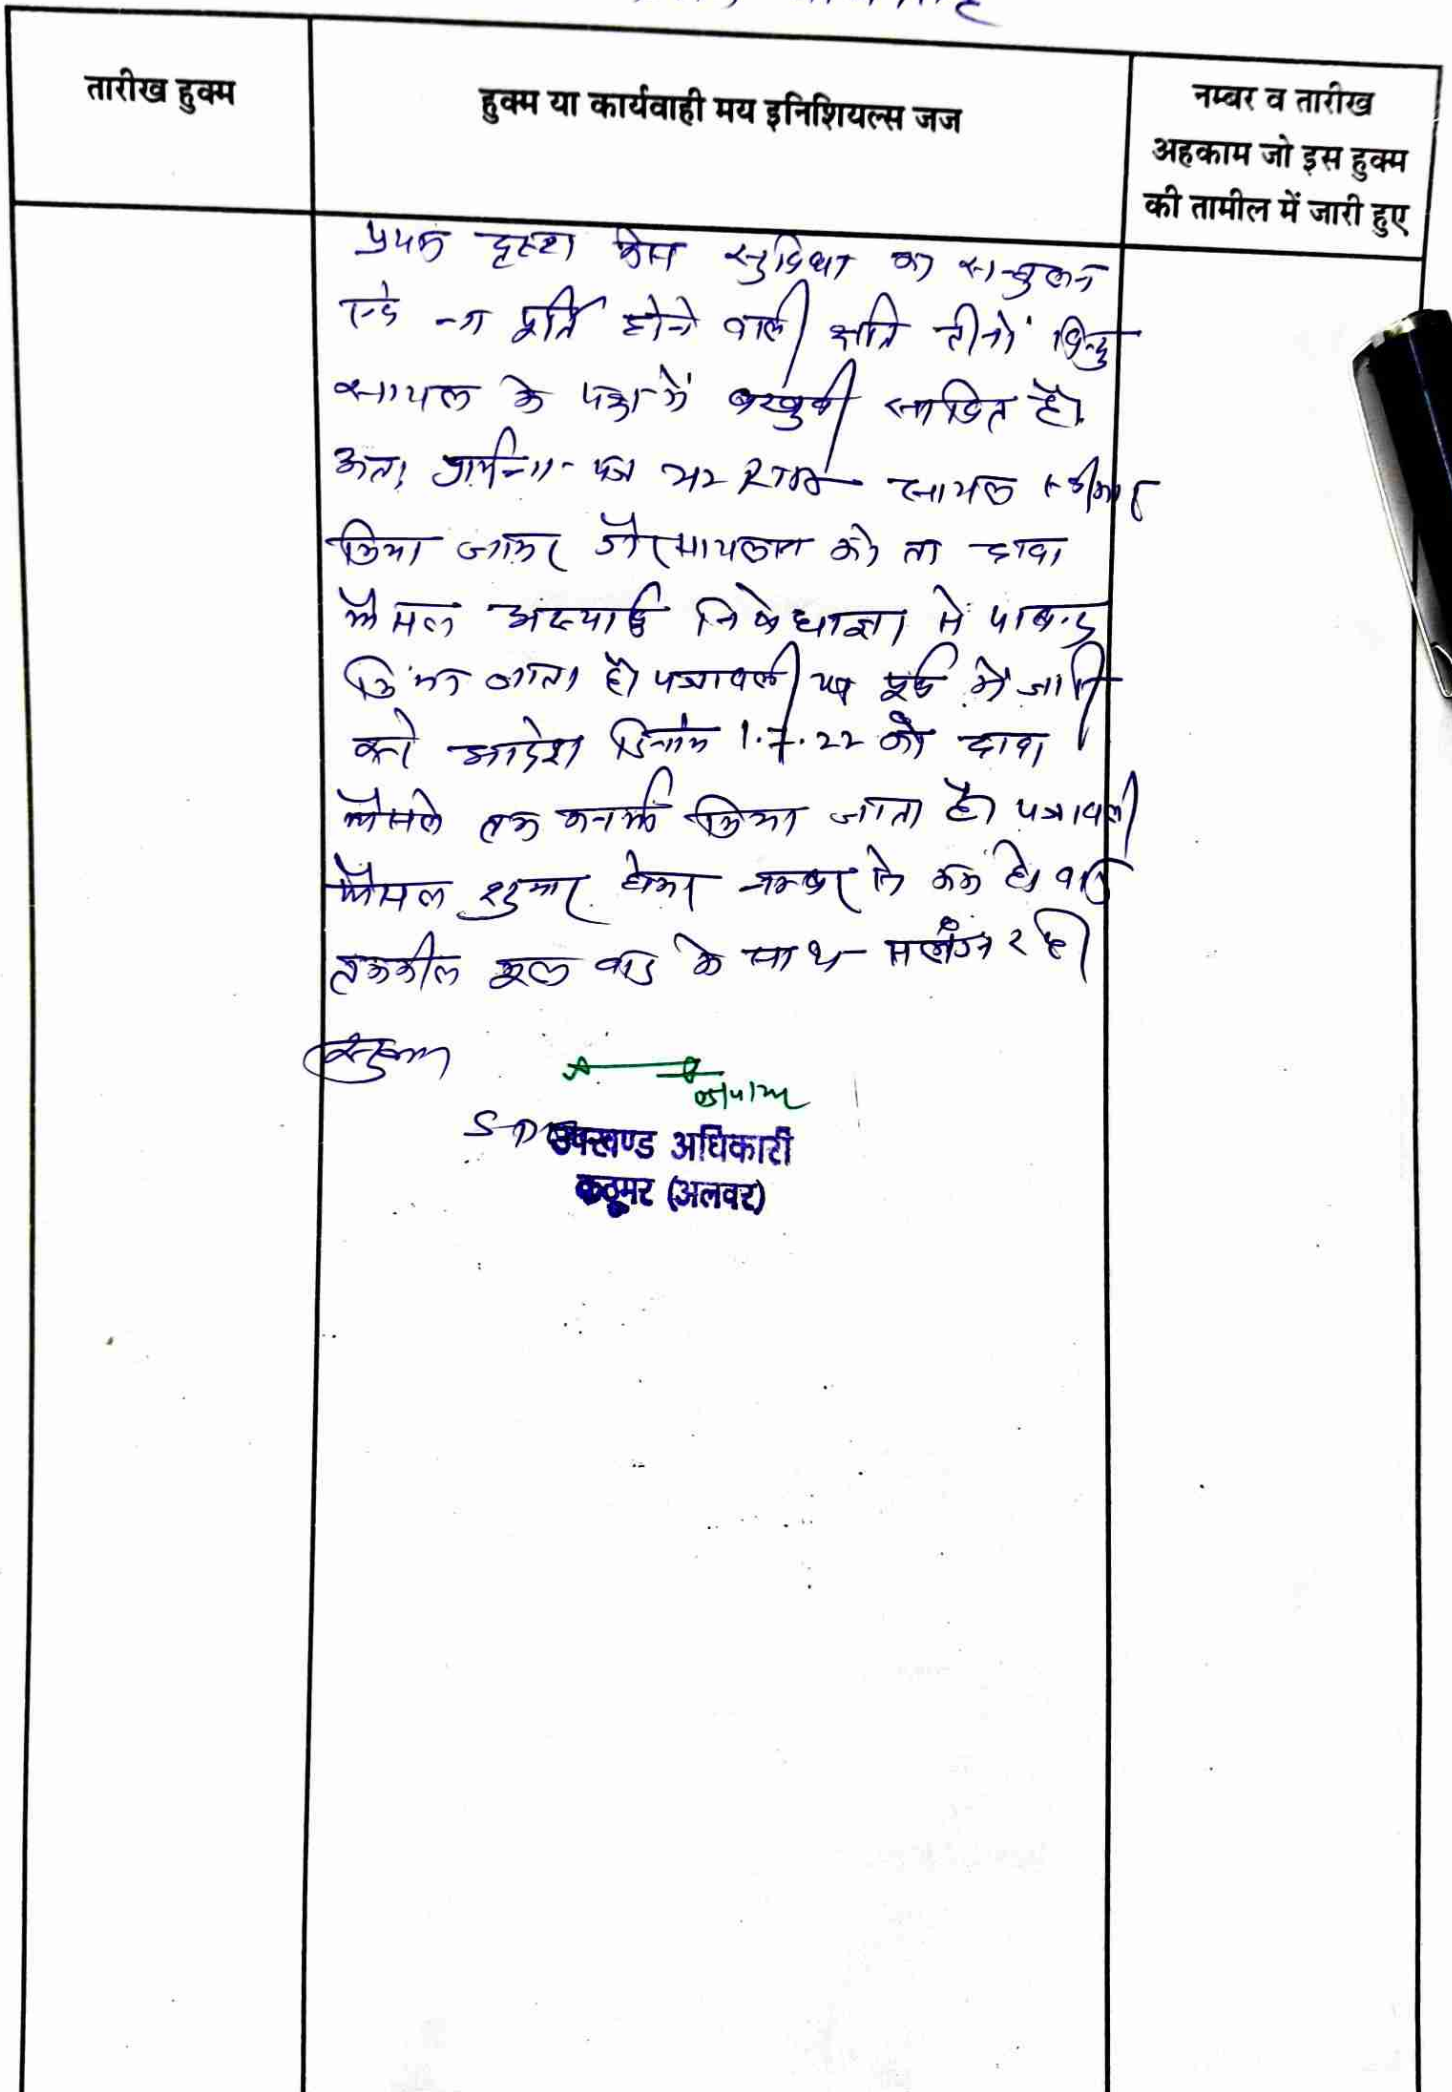 तारीख हुक्म
हुक्म या कार्यवाही मय इनिशियल्स जज
नम्बर व तारीख
अहकाम जो इस हुक्म
की तामील में जारी हुए
प्रथम दृष्टया केस सुविधा का सन्तुलन
एवं ना पूर्ति होने वाली क्षति तीनों बिन्दु
सायल के पक्ष में बखुबी साबित है।
अतः प्रार्थना-पत्र सायल स्वीकार
किया जाकर गैरसायलान को ता दावा
फैसल अस्थाई निषेधाज्ञा से पाबन्द
किया जाता है। पत्रावली पर पूर्व में जारी
आदेश दिनांक 1.7.22 को दावा
फैसले तक कनफर्म किया जाता है। पत्रावली
फैसल शुमार होकर नम्बर से कम हो बाद
तकमील मूल वाद के साथ संलग्न रहे।
उपखण्ड अधिकारी
कठूमर (अलवर)